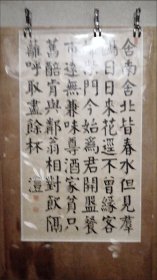 舍南舍北皆春水但見羣
鷗日日來花逕不曾緣客
掃蓬門今始為君開盤餐
市遠無兼味尊酒家貧只
舊醅肯與鄰翁相對飲隔
籬呼取盡餘杯